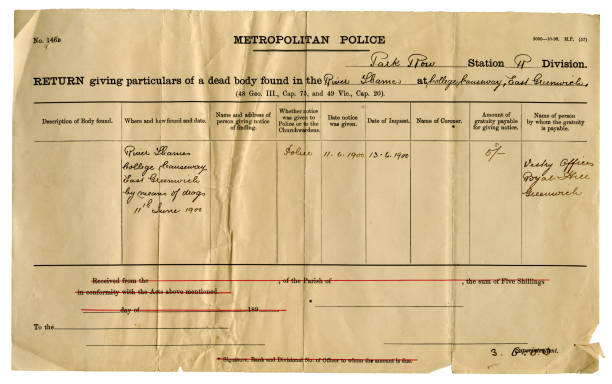 No. 146a
METROPOLITAN POLICE
5000—10-98. M.P. (37)
Park Row Station R Division.
RETURN giving particulars of a dead body found in the River Thames at College Causeway, East Greenwich
(48 Geo. III., Cap. 75, and 49 Vic., Cap. 20).
Description of Body found.
Where and how found and date.
Name and address of
person giving notice
of finding.
Whether notice
was given to
Police or to the
Churchwardens.
Date notice
was given.
Date of Inquest.
Name of Coroner.
Amount of
gratuity payable
for giving notice.
Name of person
by whom the gratuity
is payable.
River Thames
College Causeway
East Greenwich
by means of drags
11th June 1900
Police
11.6.1900
13.6.1900
5/-
Vestry Offices
Royal Hill
Greenwich
Received from the , of the Parish of , the sum of Five Shillings
in conformity with the Acts above mentioned.
day of 189
To the
Superintendent.
* Signature, Rank and Divisional No. of Officer to whom the amount is due.